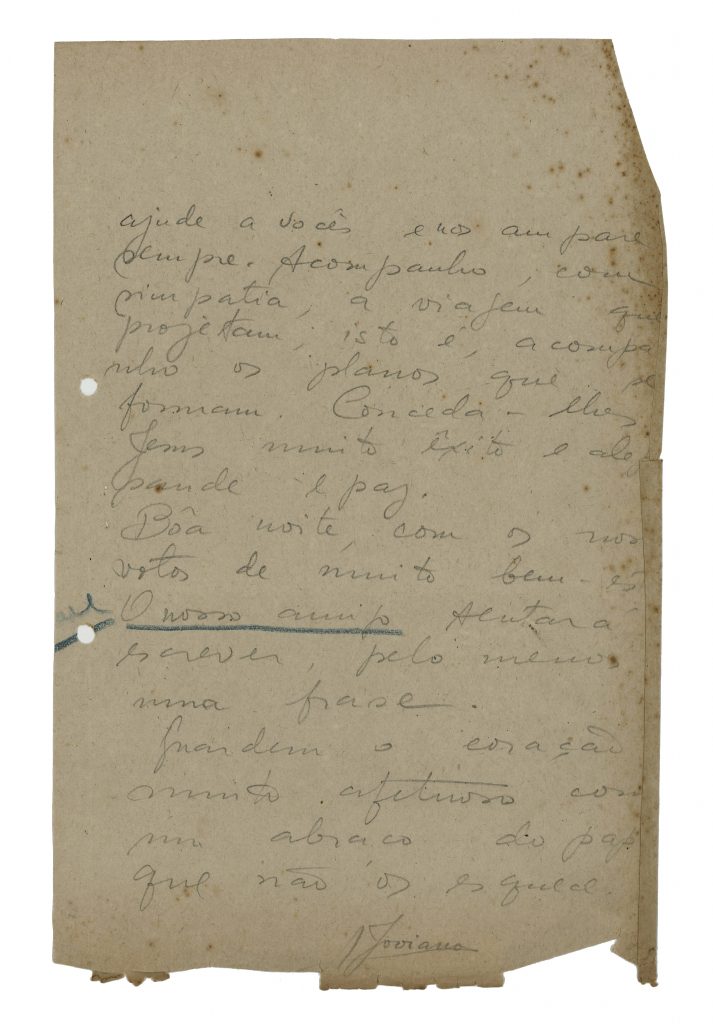 ajude a vocês e nos ampare
sempre. Acompanho, com
simpatia, a viagem que
projetam, isto é, acompa
nho os planos que se
formam. Conceda-lhes
Jesus muito êxito e aleg
grande e paz.
Bôa noite, com os nos
votos de muito bem-es
O nosso amigo tentará
escrever, pelo menos
uma frase.
Guardem o coração
muito afetuoso com
um abraço do papa
que não os esquece.
Joviano